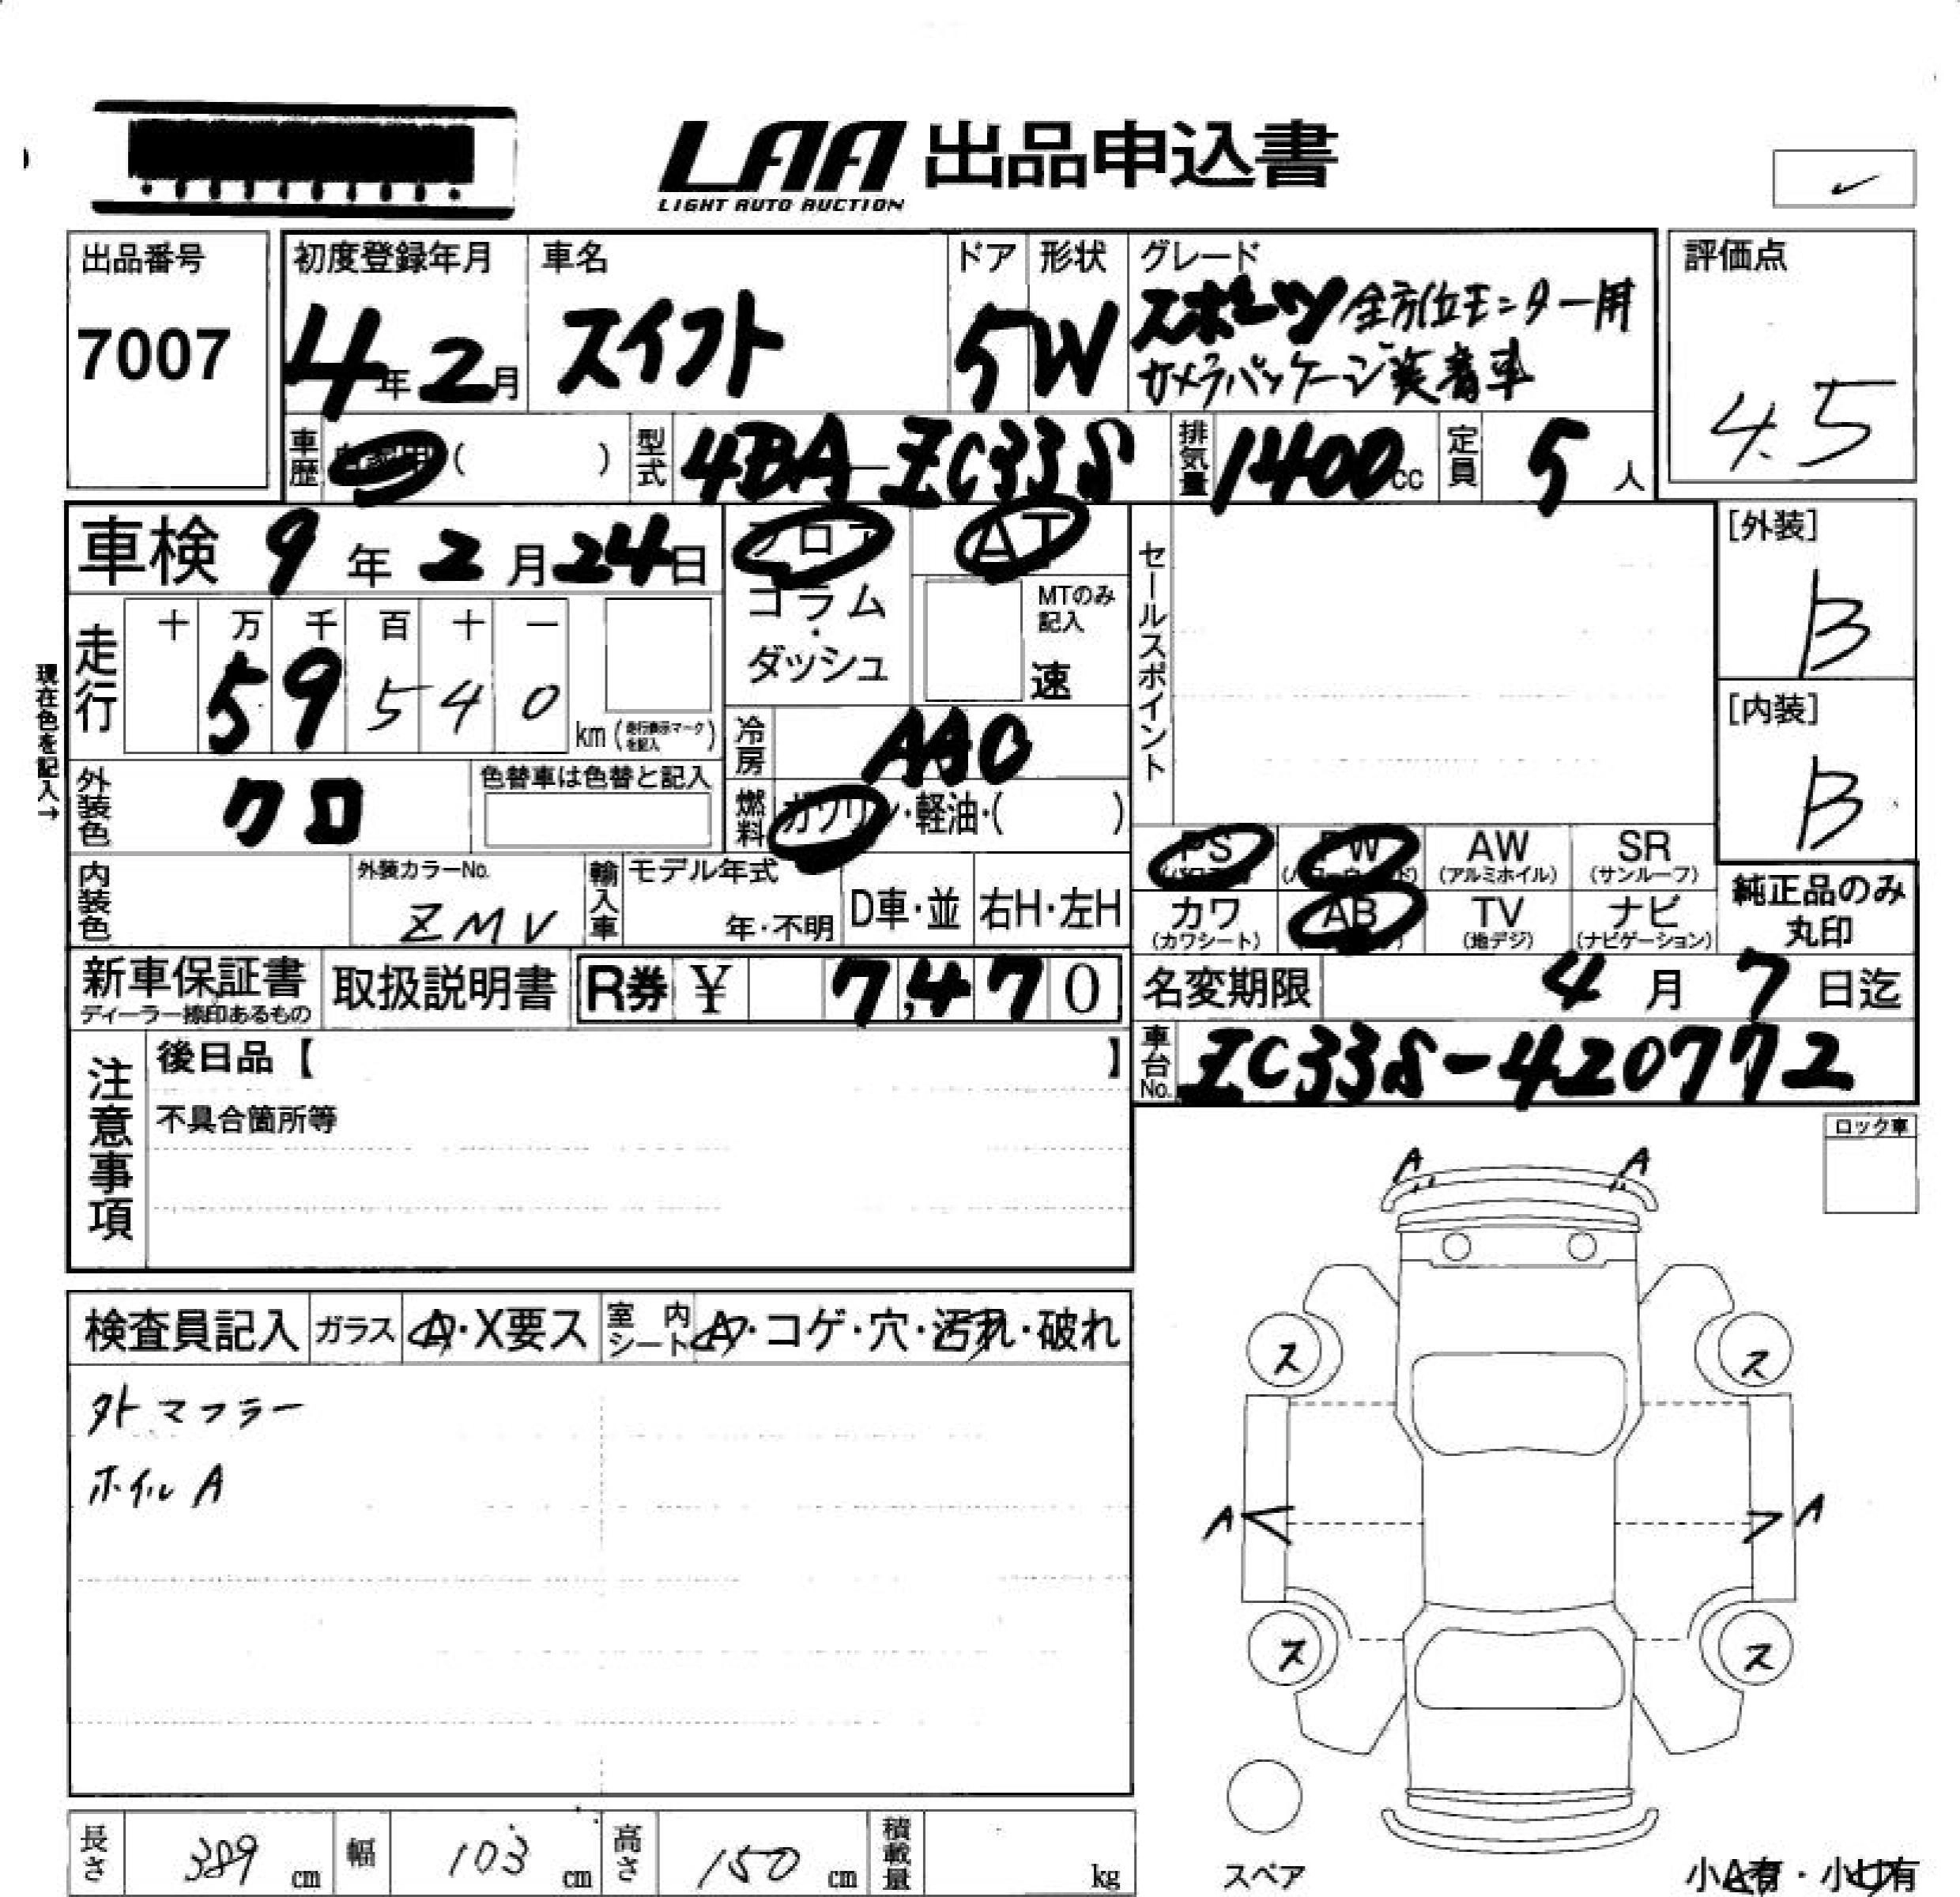 LAA 出品申込書
LIGHT AUTO AUCTION
出品番号
7007
初度登録年月
4年2月
車名
スイフト
ドア
5
形状
W
グレード
スポーツ 全方位モニター用
カメラパッケージ装着車
評価点
4.5
車歴
( )
型式
4BA-ZC33S
排気量
1400cc
定員
5人
車検 9年2月24日
フロア
コラム・
ダッシュ
AT
MTのみ
記入
速
セールスポイント
[外装]
B
[内装]
B
現在色を記入→
走行
十 万 千 百 十 一
5 9 5 4 0
km(走行表示マークを記入)
冷房
AAC
燃料
ガソリン・軽油・( )
外装色
クロ
色替車は色替と記入
内装色
外装カラーNo.
ZMV
輸入車
モデル年式
年・不明
D車・並
右H・左H
PS
PW
AW
(アルミホイル)
SR
(サンルーフ)
カワ
(カワシート)
AB
TV
(地デジ)
ナビ
(ナビゲーション)
純正品のみ
丸印
新車保証書
ディーラー捺印あるもの
取扱説明書
R券 ¥ 7,470
名変期限 4月7日迄
車台No.
ZC33S-420772
注意事項
後日品【 】
不具合箇所等
ロック車
検査員記入
ガラス
A・X要ス
室内シート
A・コゲ・穴・汚れ・破れ
外マフラー
ホイルA
A A
ス ス
A A
ス ス
スペア
小A有・小U有
長さ
389cm
幅
103cm
高さ
150cm
積載量
kg